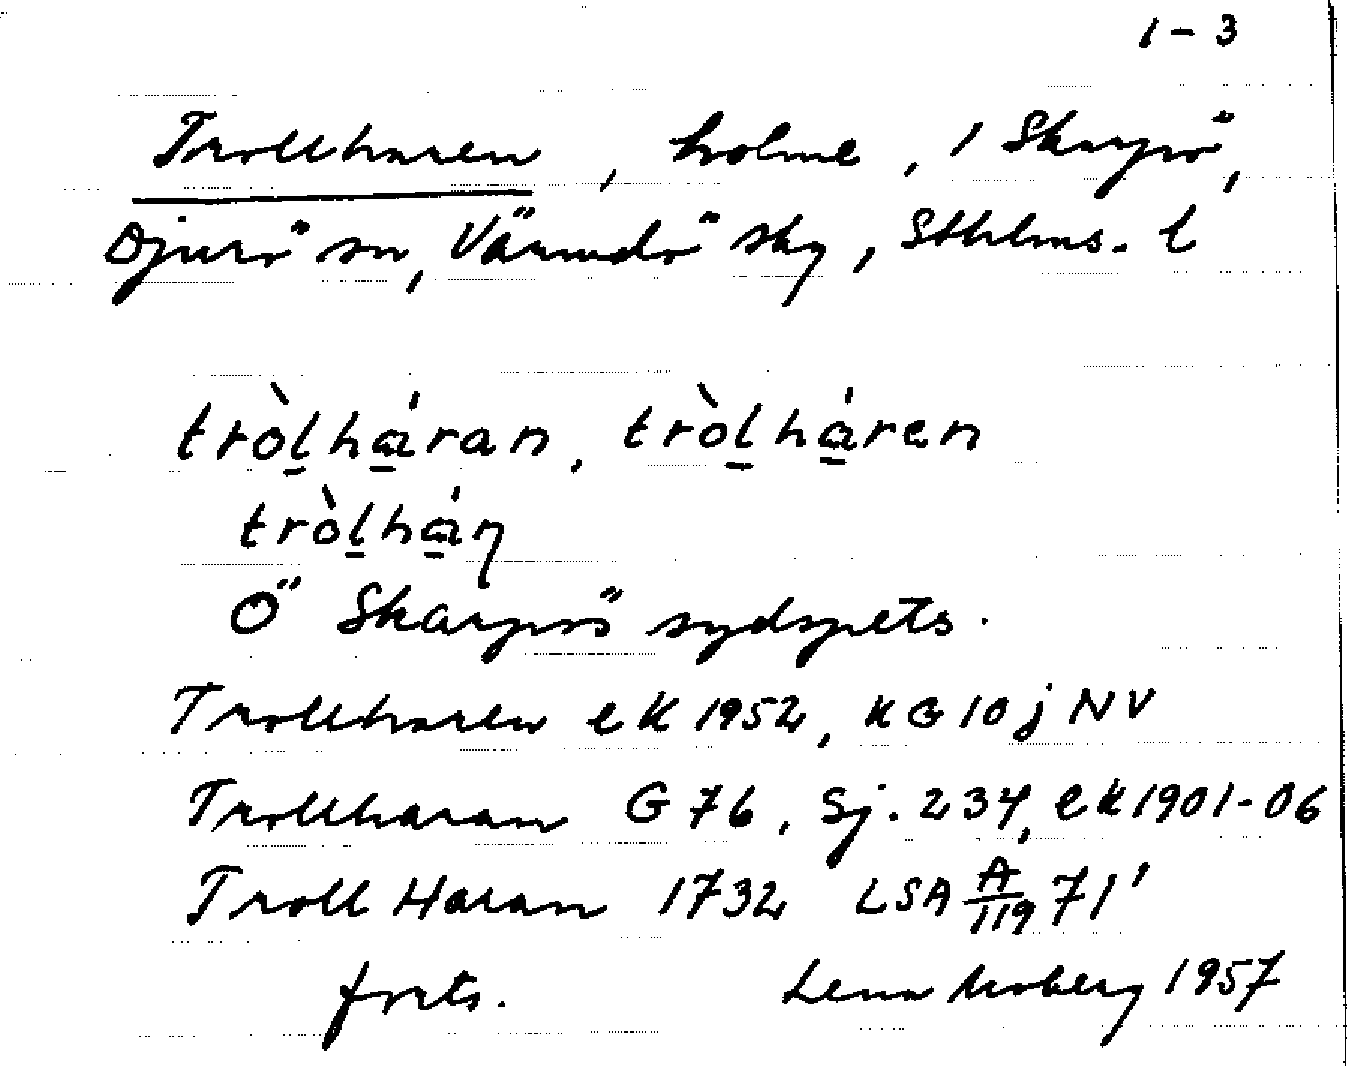 1-3
Trollharen, holme, 1 Skarpö,
Djurö sn, Värmdö skg, Sthlms. l
tròl̲há̲ran, tròl̲há̲ren
tròl̲há̲ŋ
Ö Skarpös sydspets.
Trollharen ek 1952, KG 10 j NV
Trollharan G 76, Sj. 234, ek 1901-06
Troll Haran 1732 LSA A/119 71'
forts. Lena Moberg 1957